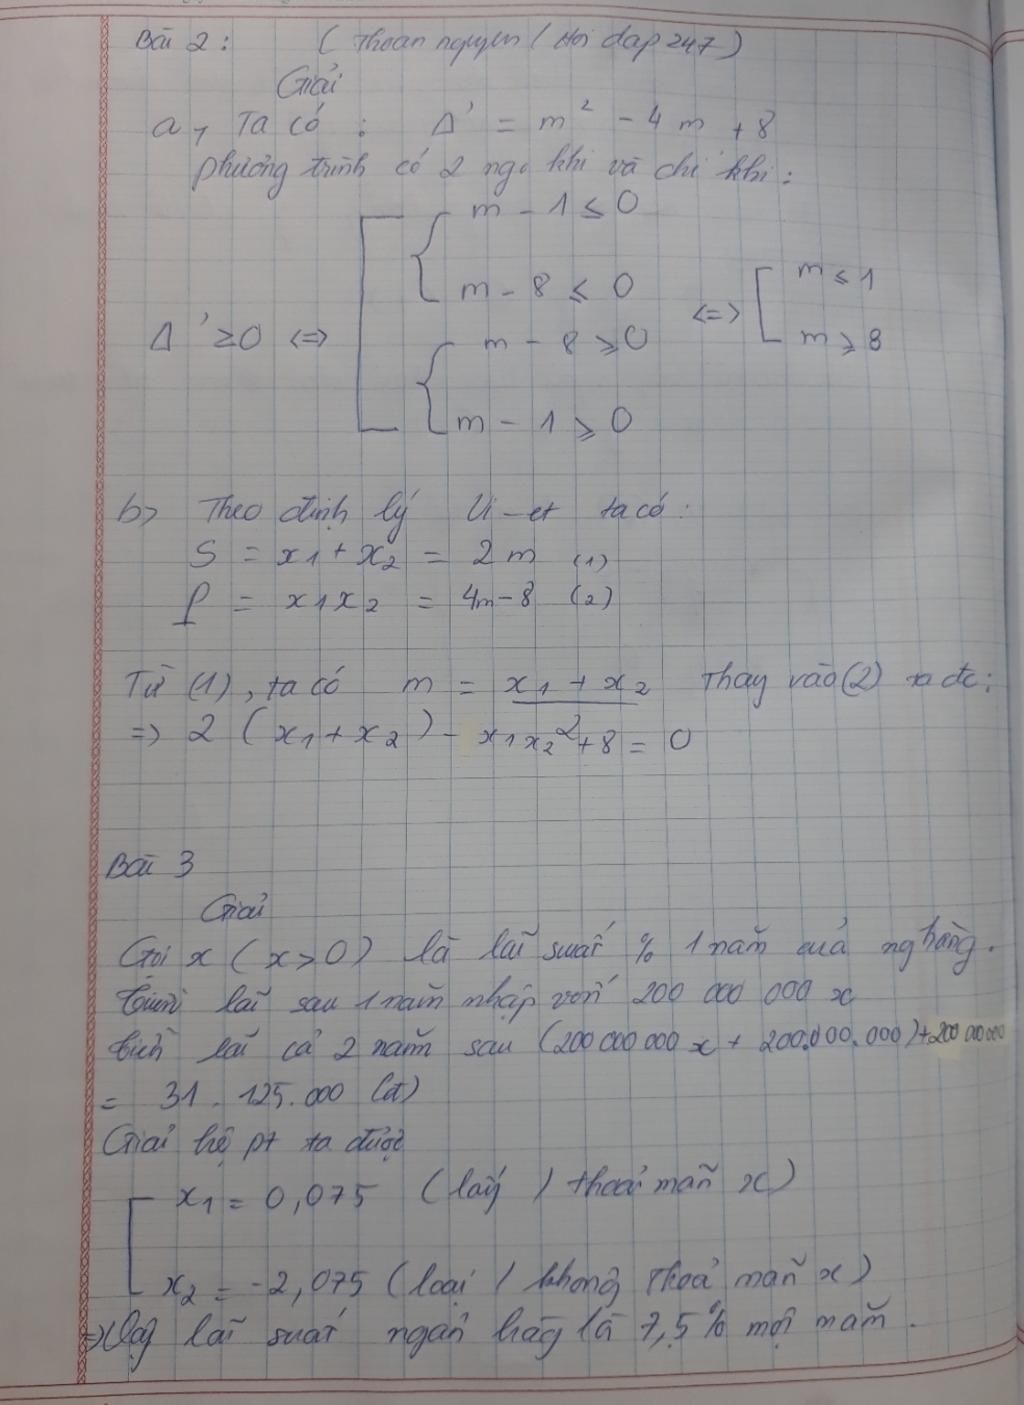 Bài 2: ( Thoan nguyen / Hoi dap 247 )
Giải
a, Ta có : Δ' = m² - 4m + 8
phương trình có 2 ngo khi và chỉ khi :
Δ' ≥ 0 <=> [ { m - 1 ≤ 0
m - 8 ≤ 0
{ m - 8 ≥ 0
m - 1 ≥ 0
<=> [ m ≤ 1
m ≥ 8
b> Theo định lý Vi-et ta có :
S = x1 + x2 = 2m (1)
P = x1x2 = 4m-8 (2)
Từ (1), ta có m = x1 + x2 Thay vào (2) ta đc:
=> 2 (x1 + x2) - x1x2² + 8 = 0
Bài 3
Giải
Gọi x (x>0) là lãi suất % 1 năm của ng hàng.
lãi sau 1 năm nhập vốn 200 000 000 x
lãi cả 2 năm sau (200 000 000 x + 200.000.000) + 200 000 000
= 31.125.000 (đ)
Giải hệ pt ta được
[ x1 = 0,075 (lấy / thoả mãn x)
x2 = -2,075 (loại / không thoả mãn x)
=> Vậy lãi suất ngân hàg là 7,5% một năm.